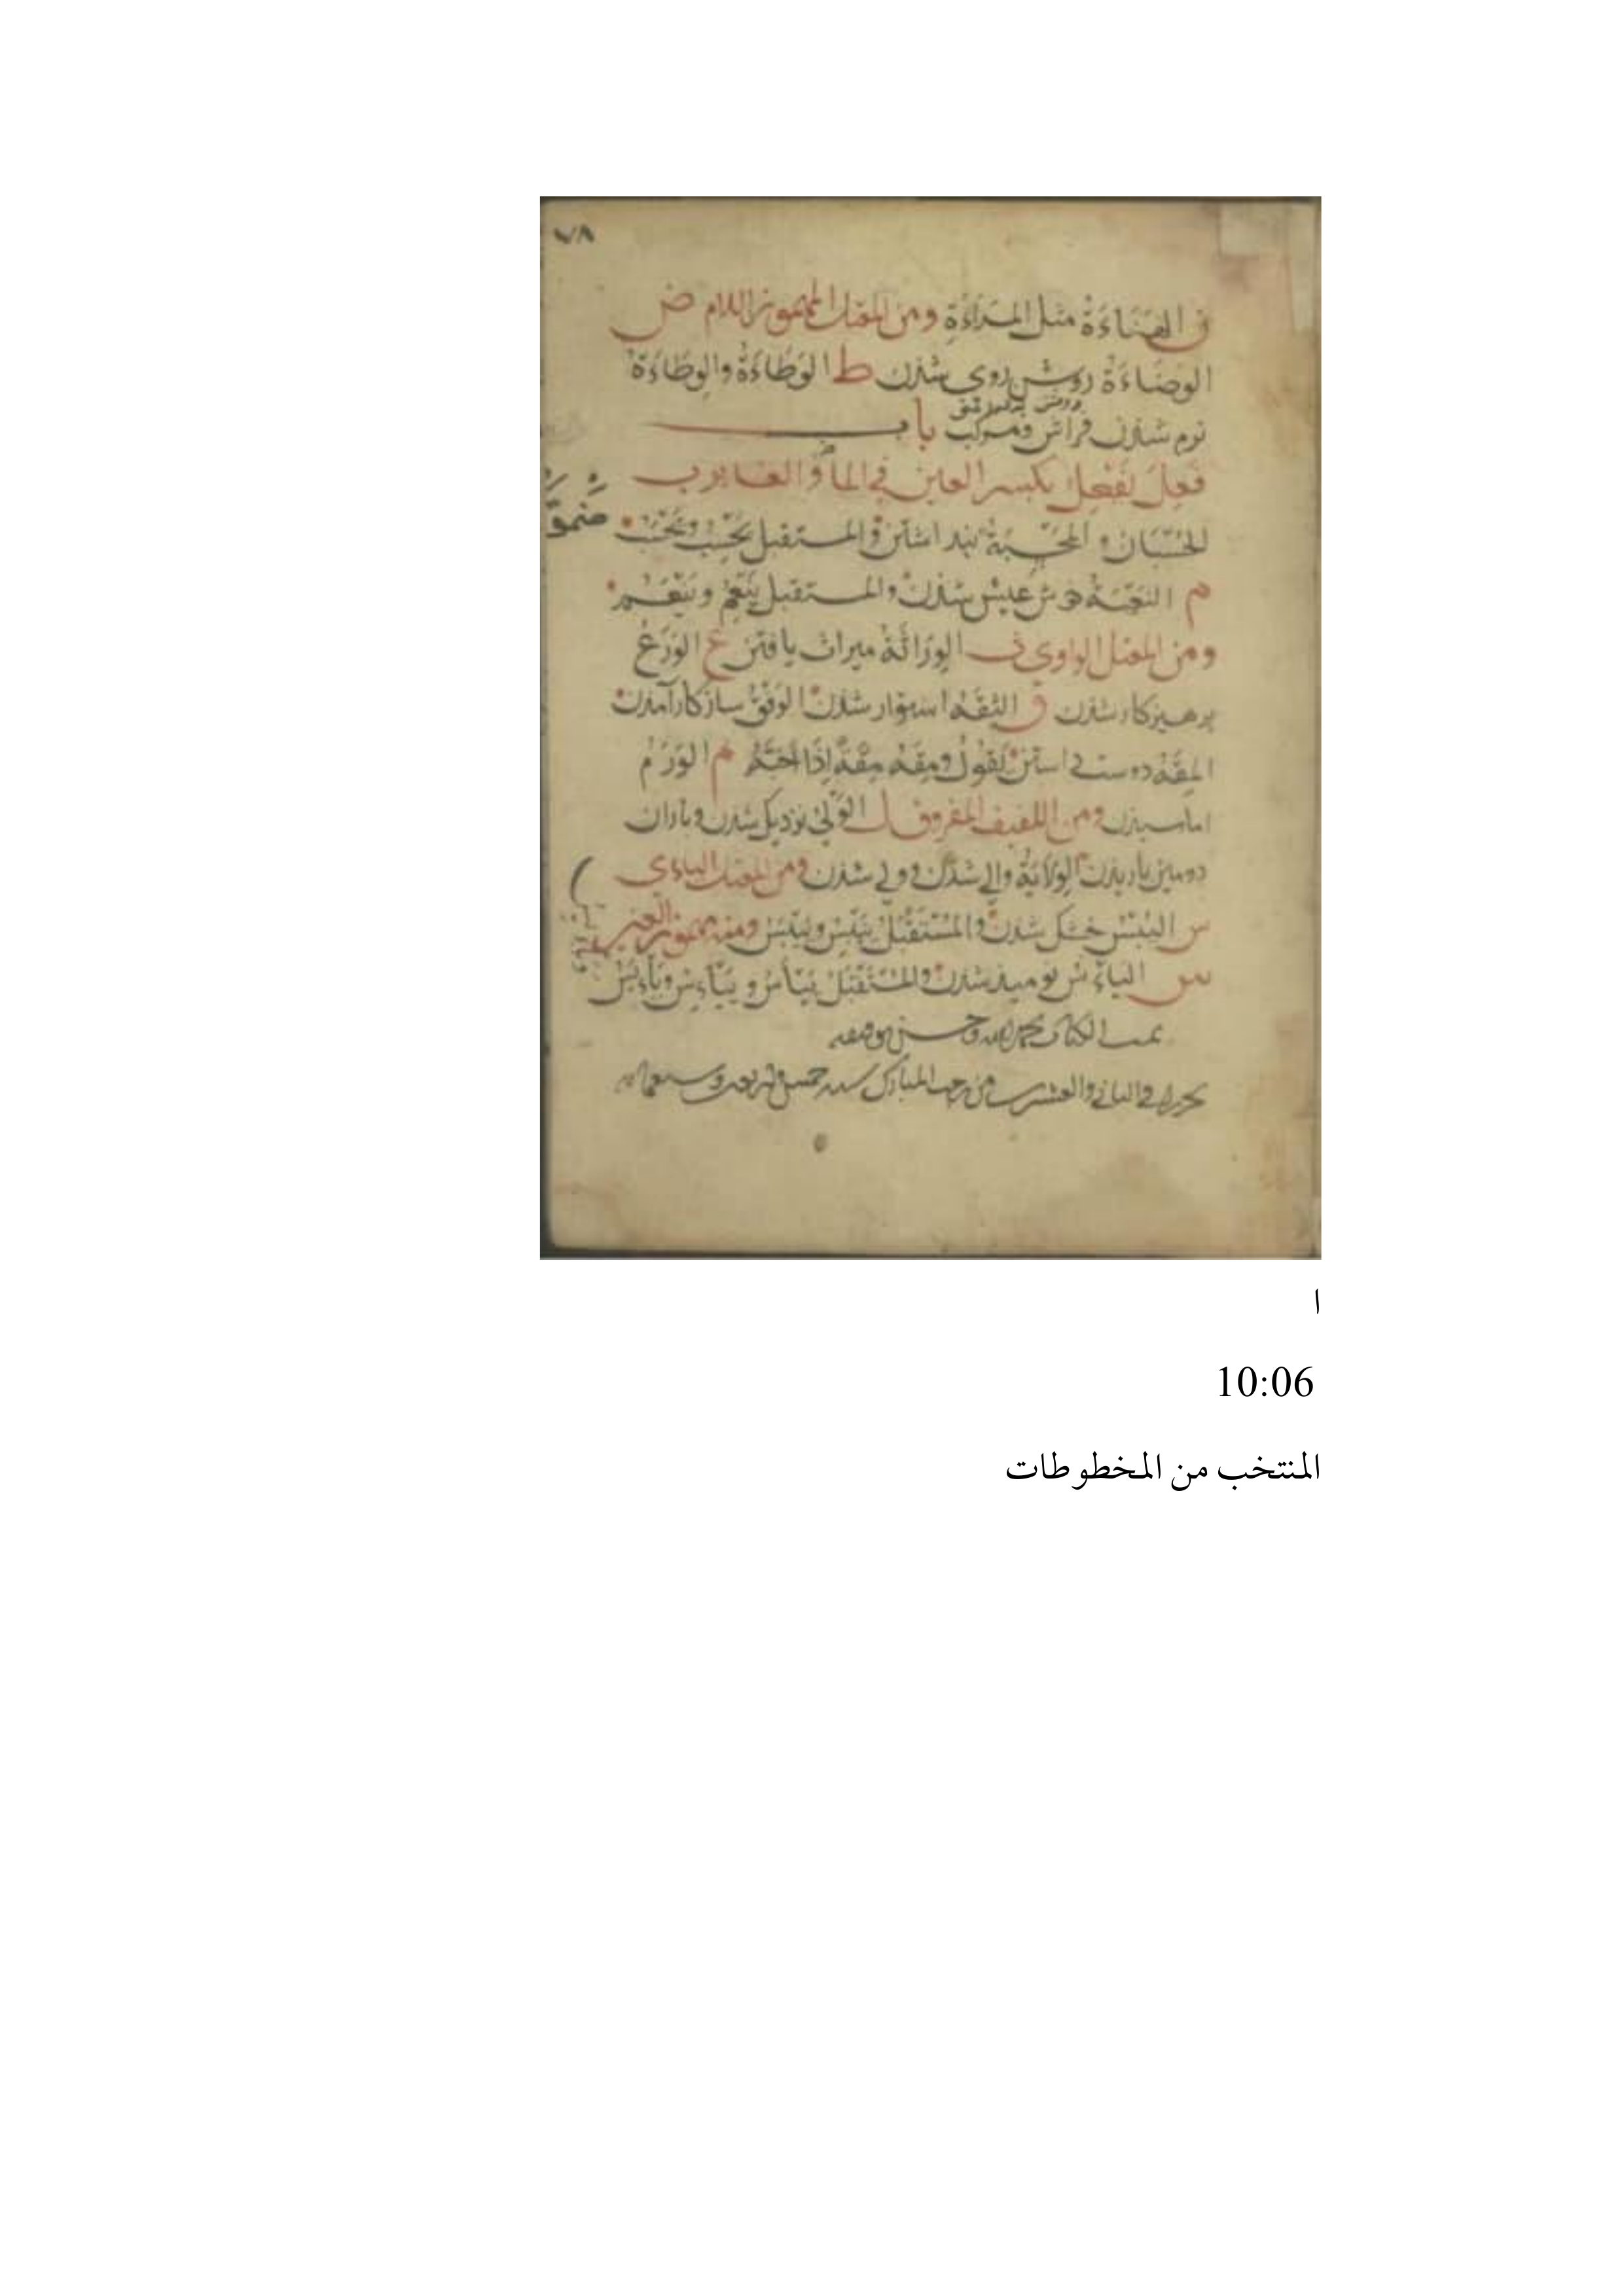 ٧٨
الفناءة مثل المراءة ومن المعتل المهموز اللام ض
الوضاءة روشن روى شذن ط الوَطَاءَةُ والوِطَاءَةُ
نرم شذن فراش ومركب باب
فَعِلَ يَفْعِلُ بكسر العين في الماضي و الغابر
الحسبان و المحسبة بنداشتن والمستقبل يحسِب ويحسَب
م النعمة خوش عيش شذن والمستقبل ينعِم وينعَم
ومن المعتل الواوى ث الوراثة ميراث يافتن ع الورع
برهيزكار شذن ق الثقة استوار شذن الوفق سازكار آمذن
المقة دوست داشتن تقول ومقه مقة إذا أحبّه م الورم
اماسيذن ومن اللفيف المفروق ل الولي نزديك شذن وباران
دومين باريذن الولاية والي شذن و ولي شذن ومن المعتل اليائي
س اليبس خشك شذن والمستقبل ييبِس وييبَس ومنه مهموز العين
س اليأس نوميذ شذن والمستقبل ييأس و ييئس
تمت الكتاب بحمد الله وحسن توفيقه
تحريرا في الثاني والعشرين من رجب المبارك سنة خمس واربعين وسبعمائة
ا
10:06
المنتخب من المخطوطات